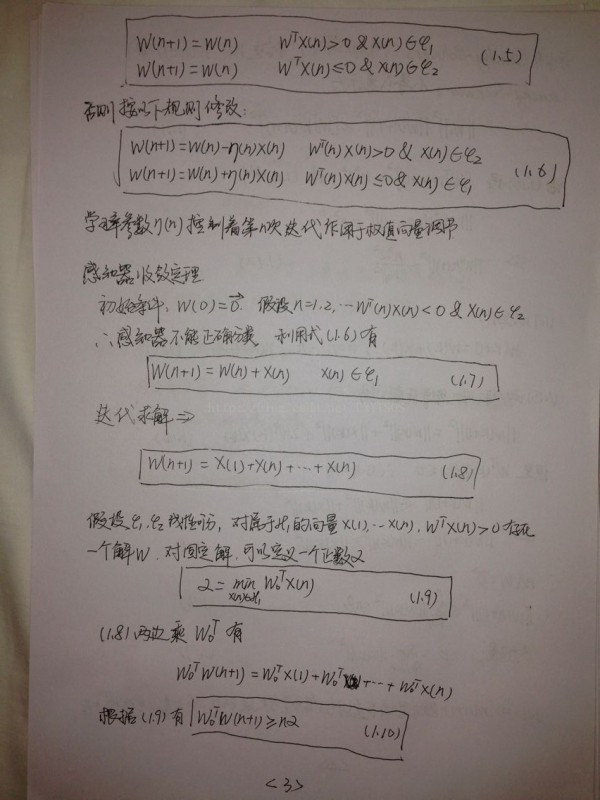 W(n+1) = W(n)  WᵀX(n)>0 & X(n)∈ℓ₁
W(n+1) = W(n)  WᵀX(n)≤0 & X(n)∈ℓ₂  (1.5)
否则按以下规则修改:
W(n+1)=W(n)-η(n)X(n)  Wᵀ(n)X(n)>0 & X(n)∈ℓ₂
W(n+1)=W(n)+η(n)X(n)  Wᵀ(n)X(n)≤0 & X(n)∈ℓ₁  (1.6)
学习率参数η(n)控制着第n次迭代作用于权值向量调节
感知器收敛定理
初始条件, W(0)=0⃗. 假设n=1.2, ⋯Wᵀ(n)X(n)<0 & X(n)∈ℓ₂
∴感知器不能正确分类 利用式(1.6)有
W(n+1) = W(n) + X(n)  X(n)∈ℓ₁  (1.7)
迭代求解⇒
W(n+1) = X(1)+X(2)+⋯+X(n)  (1.8)
假设ℓ₁.ℓ₂线性可分, 对属于ℓ₁的向量X(1),⋯X(n), WᵀX(n)>0存在
一个解W. 对固定解, 可以定义一个正数α
α = min W₀ᵀX(n)  (1.9)
X(n)∈ℓ₁
(1.8)两边乘W₀ᵀ有
W₀ᵀW(n+1) = W₀ᵀX(1)+W₀ᵀ +⋯+ W₀ᵀX(n)
根据(1.9)有 W₀ᵀW(n+1)≥nα  (1.10)
<3>